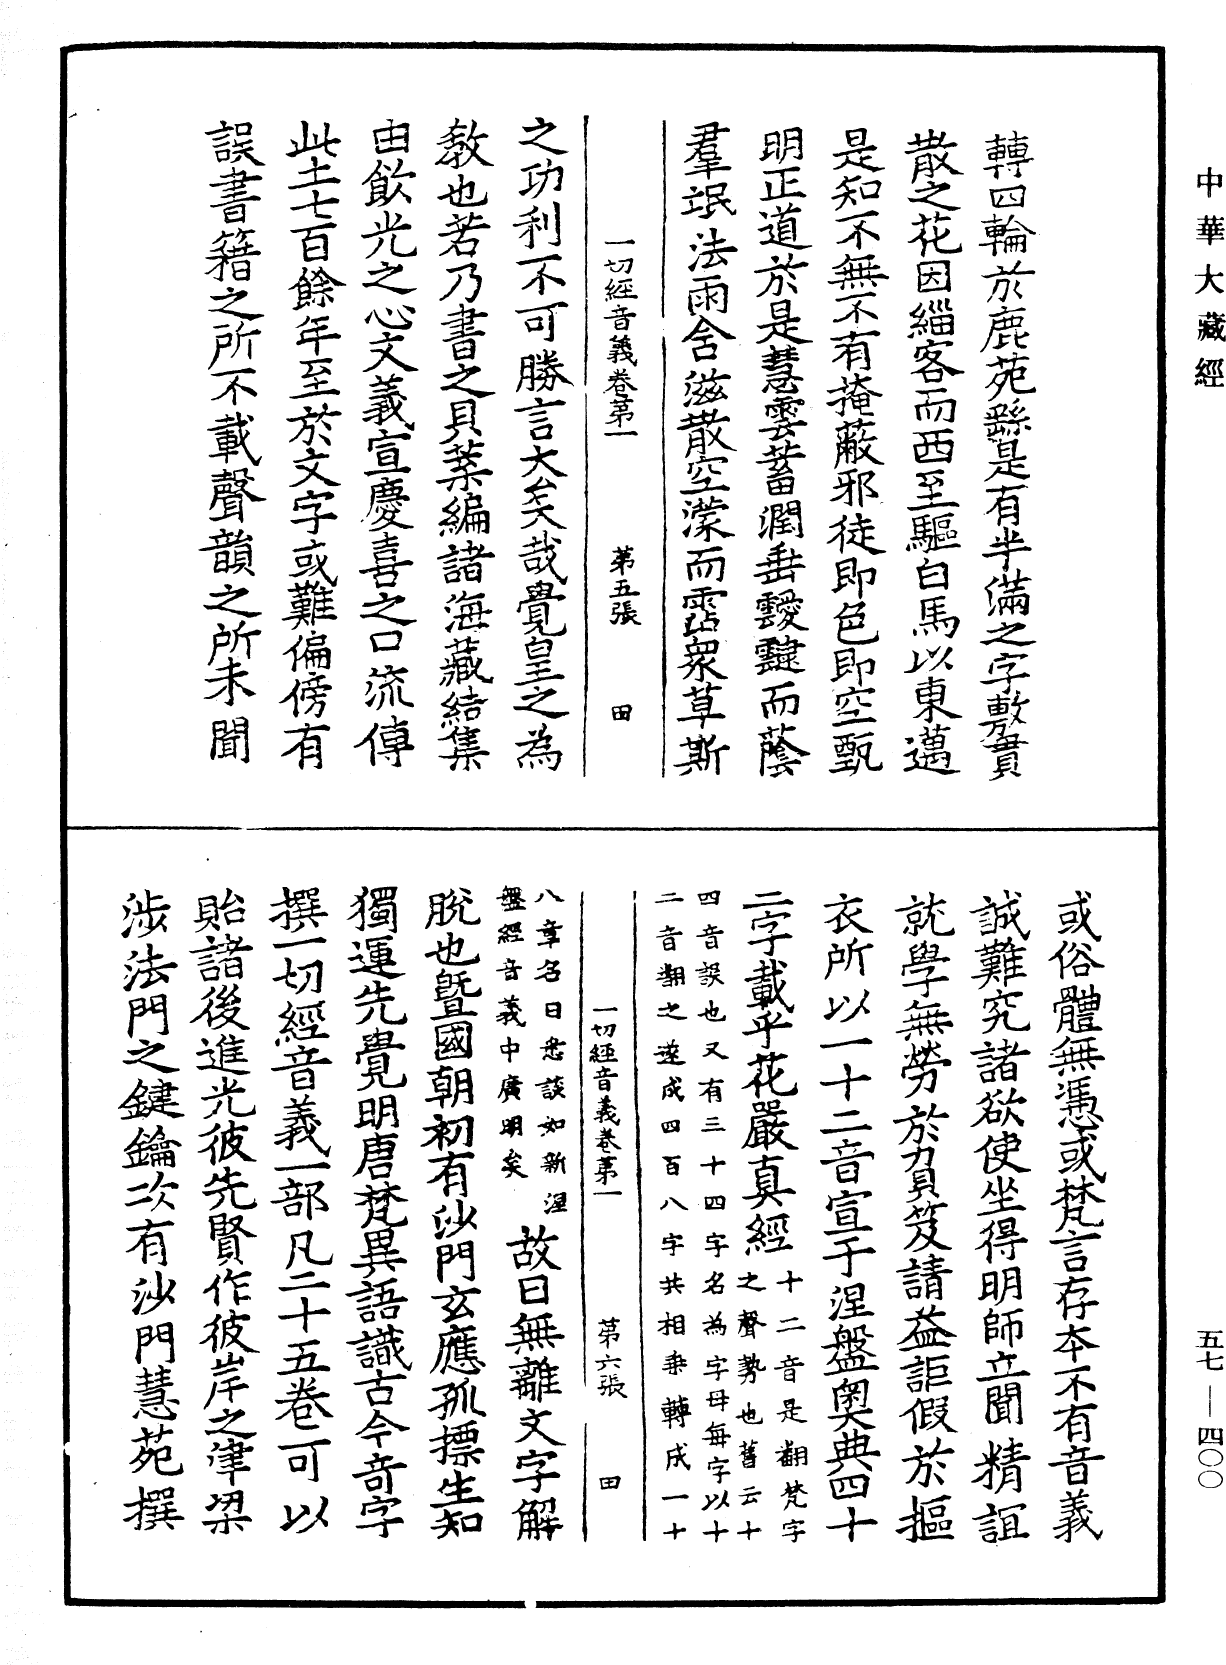 中華大藏經
轉四輪於鹿苑繇是有半滿之字敷貫
散之花因緇客而西至驅白馬以東邁
是知不無不有掩蔽邪徒即色即空甄
明正道於是慧雲蓄潤垂靉靆而蔭
羣氓法雨含滋散空濛而霑衆草斯
一切經音義卷第一 第五張 田
之功利不可勝言大矣哉覺皇之為
教也若乃書之貝葉編諸海藏結集
由飲光之心文義宣慶喜之口流傳
此土七百餘年至於文字或難偏傍有
誤書籍之所不載聲韻之所未聞
或俗體無憑或梵言存本不有音義
誠難究諸欲使坐得明師立聞精誼
就學無勞於負笈請益詎假於摳
衣所以一十二音宣于涅盤奧典四十
二字載乎花嚴真經
十二音是翻梵字
之聲勢也舊云十
四音誤也又有三十四字名為字母每字以十
二音翻之遂成四百八字共相乘轉成一十
一切經音義卷第一 第六張 田
八章名曰悉談如新涅
盤經音義中廣明矣
故曰無離文字解
脫也暨國朝初有沙門玄應孤摽生知
獨運先覺明唐梵異語識古今奇字
撰一切經音義一部凡二十五卷可以
貽諸後進光彼先賢作彼岸之津梁
涉法門之鍵鑰次有沙門慧苑撰
五七—四〇〇